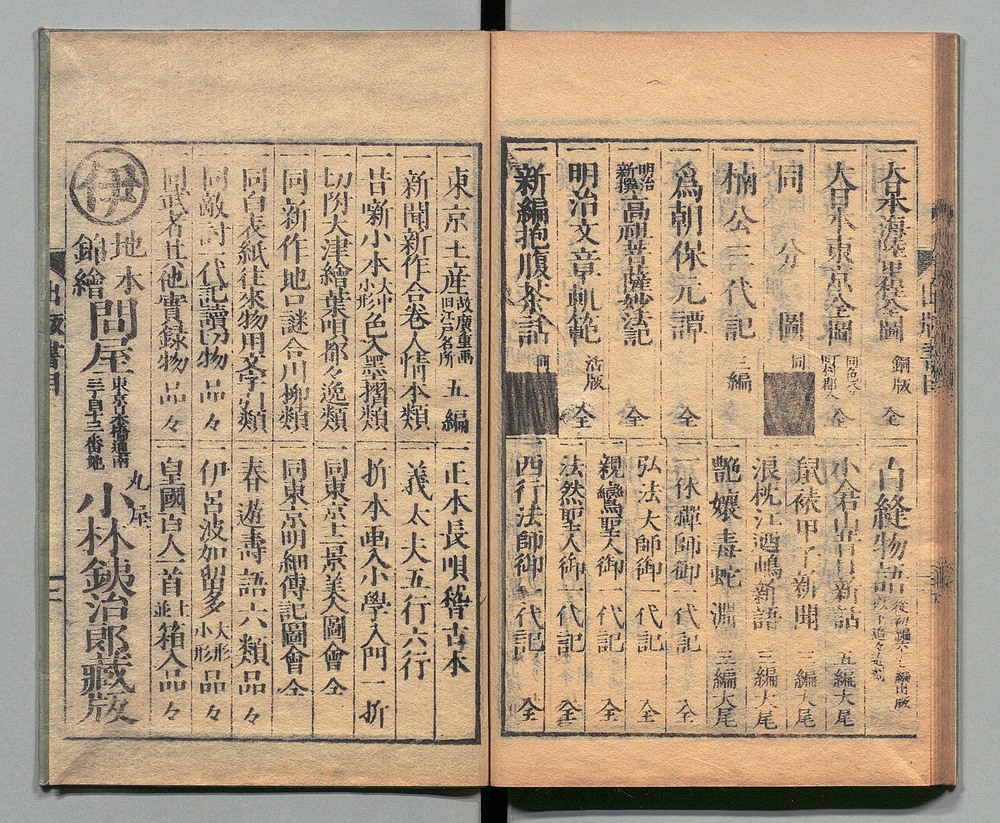 大日本海陸里程全圖 銅版 仝
大日本東京全圖 仝
同 分圖 同
楠公三代記 三編
爲朝保元譚 仝
明治新撰高祖菩薩妙法記 仝
明治文章軌範 活版 仝
新編抱腹茶話 同
白縫物語
五編大尾
鼠祿甲子新聞 三編大尾
浪枕江の嶋新語 三編大尾
艶孃毒蛇淵 三編大尾
一休禪師御一代記 仝
弘法大師御一代記 仝
親鸞聖人御一代記 仝
法然聖人御一代記 仝
西行法師御一代記 仝
出版書目
一東京土産 故廣重画 旧江戸名所 五編
一新聞新作合巻人情本類
一昔噺小本 大中小形 色入墨摺類
一切附大津繪葉唄都々逸類
一同新作地口謎合川柳類
一同白表紙往來物用文字引類
一同敵討一代記讀切物品々
一同武者其他實録物品々
一正本長唄稽古本
一義太夫五行六行
一折本画入小學入門一折
一同東京土景美人圖會 仝
一同東京明細傳記圖會 仝
一春遊壽語六類品々
一伊呂波加留多 大形小形 品々
一皇國百人一首 並上 箱入品々
伊
地本錦繪問屋
東京
丸屋 小林鉄治郎藏版
出版書目